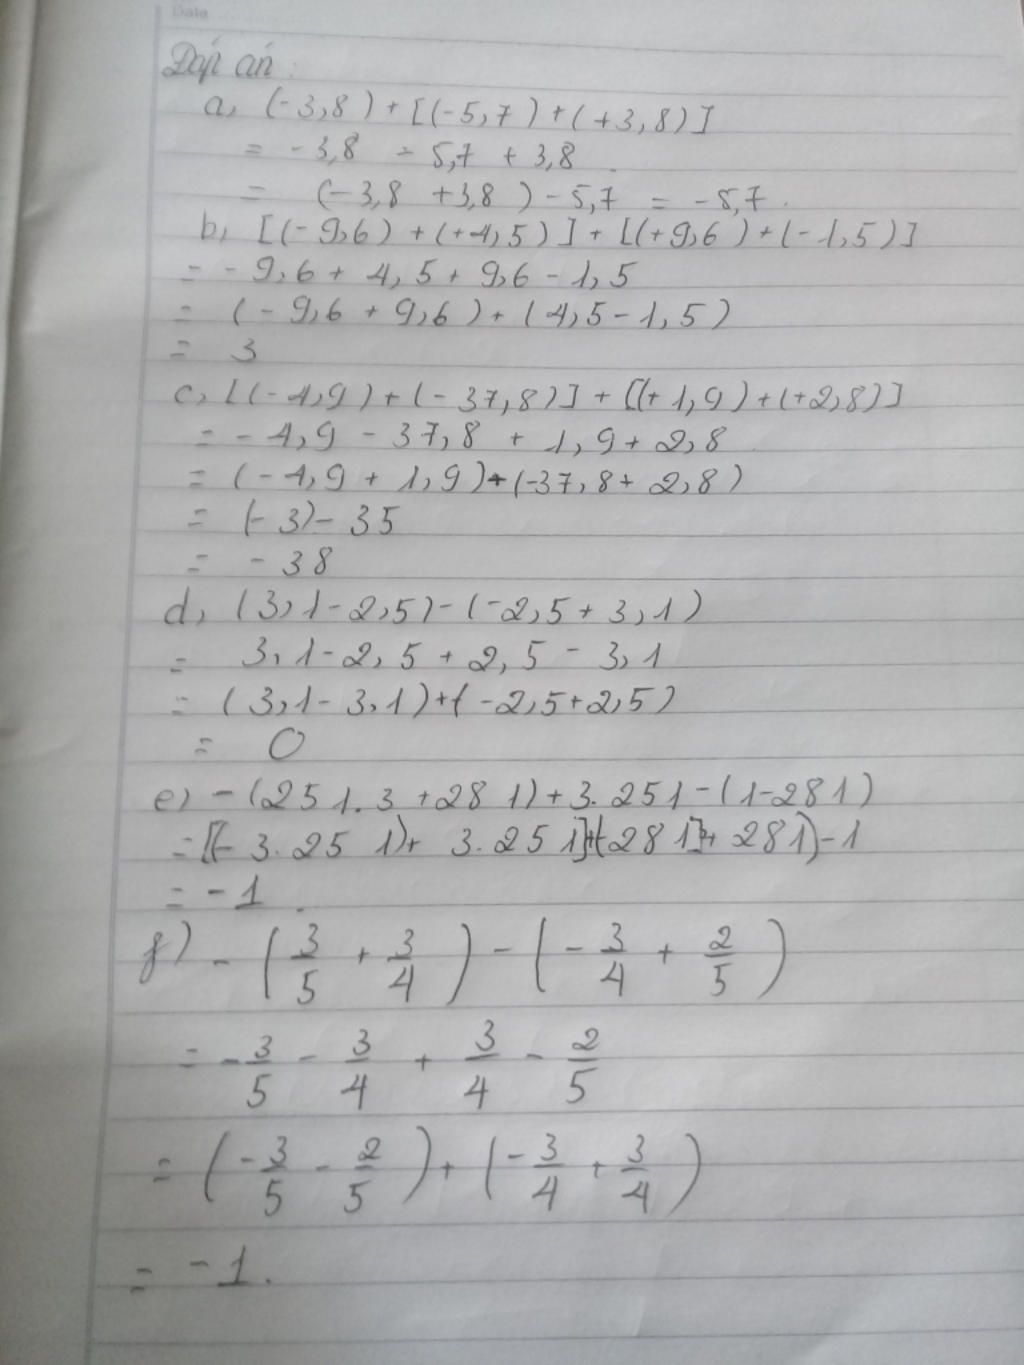 Date
Đáp án :
a, (-3,8) + [(-5,7) + (+3,8)]
= -3,8 - 5,7 + 3,8
= (-3,8 + 3,8) - 5,7 = -5,7.
b, [(-9,6) + (+4,5)] + [(+9,6) + (-1,5)]
= -9,6 + 4,5 + 9,6 - 1,5
= (-9,6 + 9,6) + (4,5 - 1,5)
= 3
c, [(-4,9) + (-37,8)] + [(+1,9) + (+2,8)]
= -4,9 - 37,8 + 1,9 + 2,8
= (-4,9 + 1,9) + (-37,8 + 2,8)
= (-3) - 35
= -38
d, (3,1 - 2,5) - (-2,5 + 3,1)
= 3,1 - 2,5 + 2,5 - 3,1
= (3,1 - 3,1) + (-2,5 + 2,5)
= 0
e) -(251.3 + 281) + 3.251 - (1 - 281)
= [(-3.251) + 3.251] + (-281) + 281) - 1
= -1.
f) -(3/5 + 3/4) - (-3/4 + 2/5)
= -3/5 - 3/4 + 3/4 - 2/5
= (-3/5 - 2/5) + (-3/4 + 3/4)
= -1.